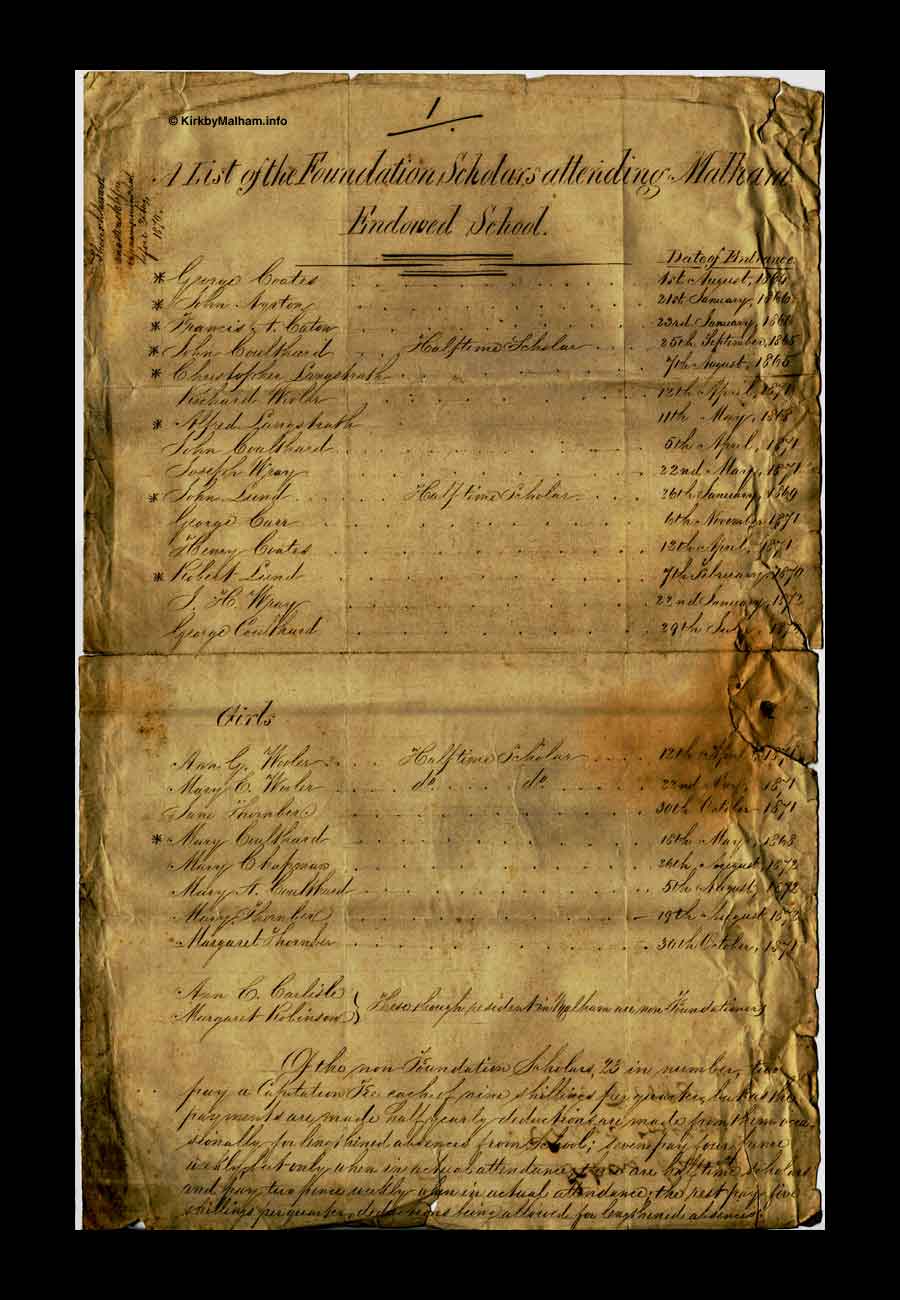 1.
© KirkbyMalham.info
A List of the Foundation Scholars attending Malham
Endowed School.
Date of Entrance
* George Coates 1st August, 1864
* John Ayrton 21st January, 1866
* Francis A. Caton 23rd January, 1866
* John Coulthard Halftime Scholar 25th September, 1865
* Christopher Langstrath 7th August, 1865
Richard Wooler 12th April, 1871
* Alfred Langstrath 11th May, 1868
John Coulthard 5th April, 1871
Joseph Wray 22nd May, 1871
* John Lund Halftime Scholar 26th January, 1869
George Carr 6th November, 1871
Henry Coates 12th April, 1871
* Robert Lund 7th February, 1870
J. H. Wray 22nd January, 1872
George Coulthard 29th July, 1872
Girls
Ann G. Wooler Halftime Scholar 12th April, 1871
Mary C. Wooler do do 22nd 1871
Jane Thornber 30th October 1871
* Mary Coulthard 18th May, 1868
Mary Chapman 26th August, 1872
Mary A. Coulthard 5th August, 1872
Mary Thornber 19th August 1872
Margaret Thornber 30th October, 1871
Ann C. Carlisle
Margaret Robinson } These though resident in Malham are non Foundationers
Of the non Foundation Scholars, 23 in number, two
pay a Capitation Fee each of nine shillings per quarter, but as the
payments are made half yearly deductions are made from them occa-
sionally, for lengthened absences from School; seven pay four pence
weekly but only when in actual attendance, are halftime scholars
and pay two pence weekly when in actual attendance, the rest pay five
shillings per quarter, deductions being allowed for lengthened absences.